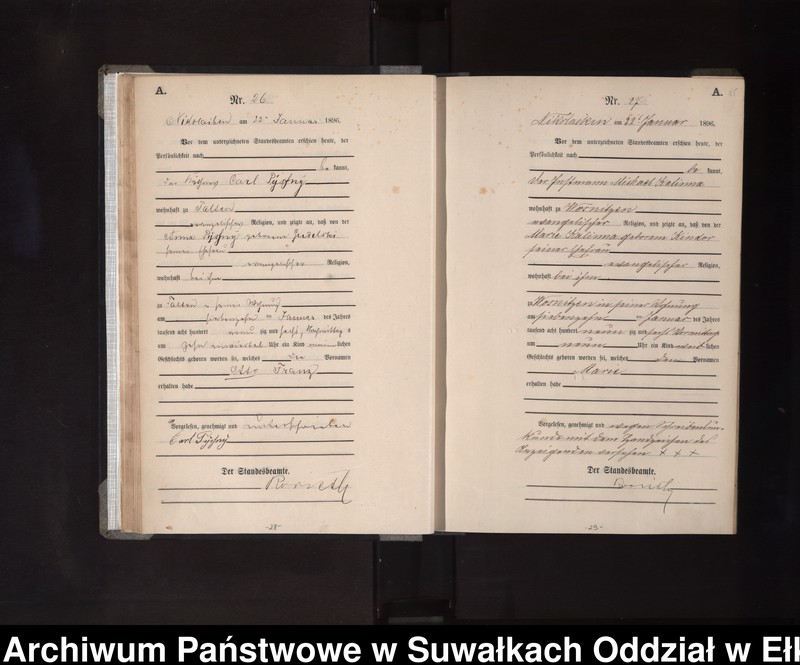 A.
Nr. 26
Nikolaiken am 22 Januar 1896.
Vor dem unterzeichneten Standesbeamten erschien heute, der
Persönlichkeit nach
be kannt,
der Carl
wohnhaft zu Talten
evangelischer Religion, und zeigte an, daß von der
geborene
seiner Ehefrau
evangelischer Religion,
wohnhaft bei ihm
zu Talten in seiner Wohnung
am siebenzehn ten Januar des Jahres
tausend acht hundert neun zig und sechs, Nachmittag s
um zehn Uhr ein Kind männlichen
Geschlechts geboren worden sei, welches die Vornamen
Otto Franz
erhalten habe
Vorgelesen, genehmigt und unterschrieben
Carl
Der Standesbeamte.
-28-
A.
Nr. 27
Nikolaiken am 22 Januar 1896.
Vor dem unterzeichneten Standesbeamten erschien heute, der
Persönlichkeit nach
be kannt,
der Kalinna
wohnhaft zu Wosnitzen
evangelischer Religion, und zeigte an, daß von der
Marie Kalinna geborene
seiner Ehefrau
evangelischer Religion,
wohnhaft bei ihm
zu Wosnitzen in seiner Wohnung
am siebenzehn ten Januar des Jahres
tausend acht hundert neun zig und sechs Vormittag s
um neun Uhr ein Kind weiblichen
Geschlechts geboren worden sei, welches den Vornamen
Marie
erhalten habe
Vorgelesen, genehmigt und wegen Schreibensun-
kunde mit dem Handzeichen des
Anzeigenden versehen + + +
Der Standesbeamte.
Archiwum Państwowe w Suwałkach Oddział w Ełk